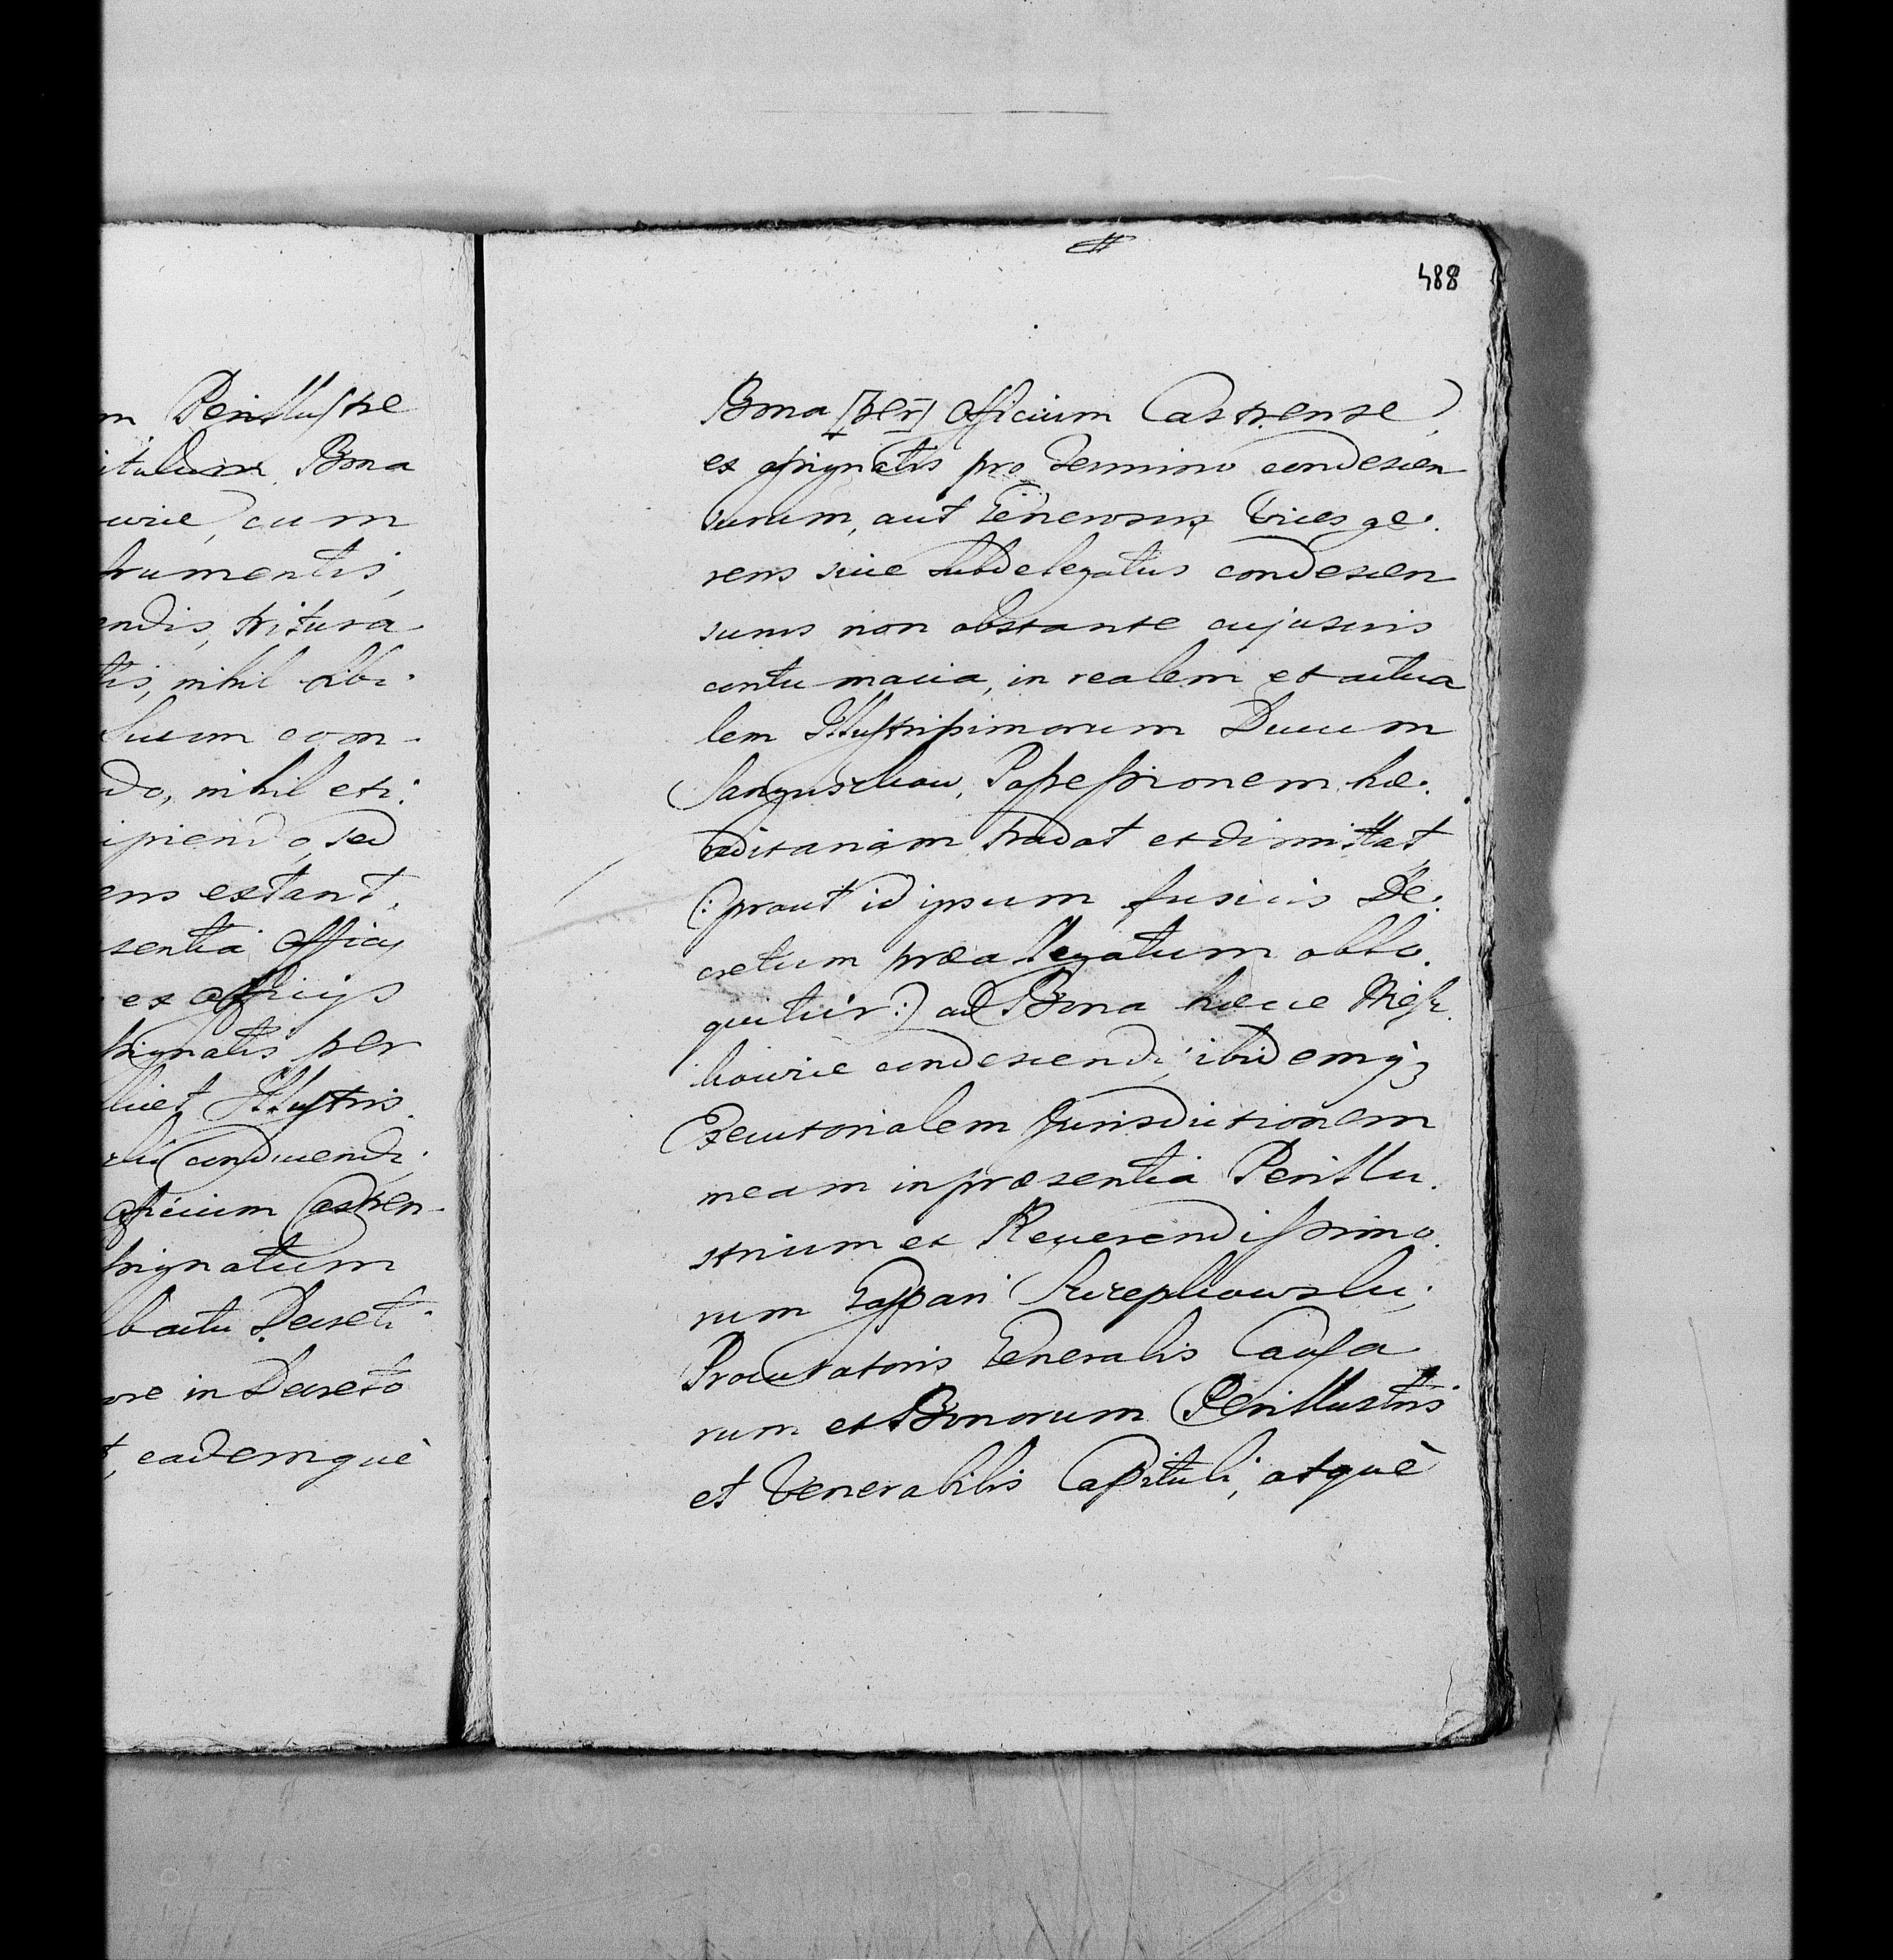 m Perillustre
itulum Bona
wice, cum
frumentis,
endis, tritura
tis, nihil sibi
suum con-
do, nihil exi.
ipiendo, sed
ens extant,
sentia Officij
ex Officijs
ssignatis per
licet Illustris
condescendi
officium Castren-
ssignatum
bactu Decreti
ore in Decreto
t, eademquè
488
Bona [per] Officium Castrense,
ex assignatis pro termino condescen
surum, aut Generosus Vices ge.
rens sive Subdelegatus condescen
surus non obstante cujusvis
contumacia, in realem et actua
lem Illustrissimorum Ducum
Sanguszkow, Possessionem hæ.
reditariam tradat et dimittat
(: prout id ipsum fusius De.
cretum præallegatum oblo.
quitur :) ad Bona hæce
kowice condescendi, ibidemq3
Executorialem Jurisdictionem
meam in præsentia Perillu.
strium et Reverendissimo.
rum Gaspari Szczepkowski,
Procuratoris Generalis Causa
rum et Bonorum Perillustris
et Venerabilis Capituli, atquè